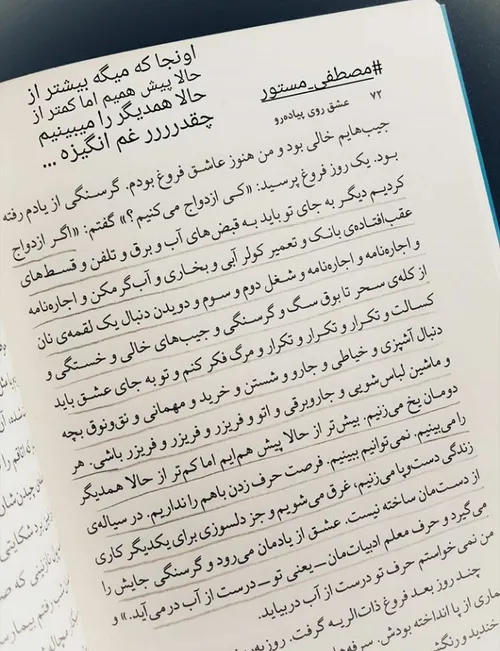 اونجا که میگه بیشتر از
حالا پیش همیم اما کمتر از
حالا همدیگر را میبینیم
چقدرررر غم انگیزه ...
#مصطفی_مستور
۷۲ عشق روی پیاده‌رو
جیب‌هایم خالی بود و من هنوز عاشق فروغ بودم. گرسنگی از یادم رفته
بود. یک روز فروغ پرسید: «کی ازدواج می‌کنیم؟» گفتم: «اگر ازدواج
کردیم دیگر به جای تو باید به قبض‌های آب و برق و تلفن و قسط‌های
عقب‌افتاده‌ی بانک و تعمیر کولر آبی و بخاری و آب‌گرمکن و اجاره‌نامه
و اجاره‌نامه و اجاره‌نامه و شغل دوم و سوم و دویدن دنبال یک لقمه‌ی نان
از کله‌ی سحر تا بوق سگ و گرسنگی و جیب‌های خالی و خستگی و
کسالت و تکرار و تکرار و تکرار و مرگ فکر کنم و تو به جای عشق باید
دنبال آشپزی و خیاطی و جارو و شستن و خرید و مهمانی و نق‌ونوق بچه
و ماشین لباس‌شویی و جاروبرقی و اتو و فریزر و فریزر و فریزر باشی. هر
دومان یخ می‌زنیم. بیش‌تر از حالا پیش هم‌ایم اما کم‌تر از حالا همدیگر
را می‌بینیم. نمی‌توانیم ببینیم. فرصت حرف زدن باهم را نداریم. در سیاله‌ی
زندگی دست‌وپا می‌زنیم، غرق می‌شویم و جز دلسوزی برای یکدیگر کاری
از دست‌مان ساخته نیست. عشق از یادمان می‌رود و گرسنگی جایش را
می‌گیرد و حرف معلم ادبیات‌مان ــ یعنی تو ــ درست از آب درمی‌آید.» و
من نمی‌خواستم حرف تو درست از آب دربیاید.
چند روز بعد فروغ ذات‌الریه گرفت. روزبه‌روز
از پا انداخته بودش. سرفه‌ها
خندید و